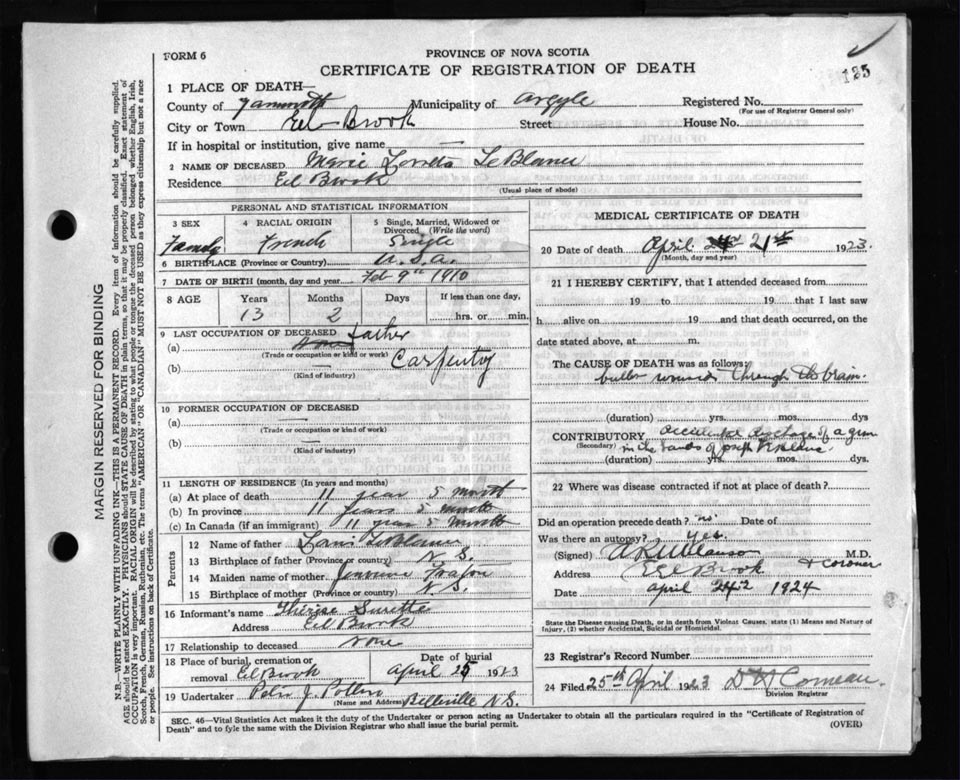 PROVINCE OF NOVA SCOTIA
FORM 6
CERTIFICATE OF REGISTRATION OF DEATH
125
1 PLACE OF DEATH—
County of Yarmouth Municipality of Argyle Registered No.
(For use of Registrar General only)
City or Town Eel Brook Street House No.
If in hospital or institution, give name
2 NAME OF DECEASED Marie Loretta LeBlanc
Residence Eel Brook
(Usual place of abode)
PERSONAL AND STATISTICAL INFORMATION
3 SEX
4 RACIAL ORIGIN French
5 Single, Married, Widowed or Divorced (Write the word) Single
6 BIRTHPLACE (Province or Country) U.S.A.
7 DATE OF BIRTH (month, day and year) Feb 9th 1910
8 AGE Years Months Days If less than one day,
13 2 hrs. or min.
9 LAST OCCUPATION OF DECEASED Father
(a)
(Trade or occupation or kind or work)
(b) — Carpenter
(Kind of industry)
10 FORMER OCCUPATION OF DECEASED
(a)
(Trade or occupation or kind of work)
(b)
(Kind of industry)
11 LENGTH OF RESIDENCE (In years and months)
(a) At place of death 11 year 5 month
(b) In province 11 years 5 month
(c) In Canada (if an immigrant) 11 years 5 month
Parents
12 Name of father Louis LeBlanc
13 Birthplace of father (Province or country) N.S.
14 Maiden name of mother
15 Birthplace of mother (Province or country) N.S.
16 Informant's name Thérèse Surette
Address Eel Brook
17 Relationship to deceased None
18 Place of burial, cremation or removal Eel Brook
Date of burial April 25 1923
19 Undertaker Peter J.
(Name and Address) Belleville N.S.
MEDICAL CERTIFICATE OF DEATH
20 Date of death April 21st 1923.
(Month, day and year)
21 I HEREBY CERTIFY, that I attended deceased from
19 to 19 that I last saw
h alive on 19 and that death occurred, on the
date stated above, at m.
The CAUSE OF DEATH was as follows:
bullet wound through the brain.
(duration) yrs. mos. dys
CONTRIBUTORY accidental discharge of a gun
(Secondary) in the hands of
(duration) yrs. mos. dys.
22 Where was disease contracted if not at place of death?
Did an operation precede death? no Date of
Was there an autopsy? yes
(Signed) M.D.
& Coroner
Address Eel Brook
Date April 1924
State the Disease causing Death, or in death from Violent Causes, state (1) Means and Nature of
Injury, (2) whether Accidental, Suicidal or Homicidal.
23 Registrar's Record Number
24 Filed 25th April 1923 D H Comeau.
Division Registrar
SEC. 46—Vital Statistics Act makes it the duty of the Undertaker or person acting as Undertaker to obtain all the particulars required in the "Certificate of Registration of
Death" and to fyle the same with the Division Registrar who shall issue the burial permit.
(OVER)
MARGIN RESERVED FOR BINDING
N.B.—WRITE PLAINLY WITH UNFADING INK—THIS IS A PERMANENT RECORD. Every item of information should be carefully supplied.
AGE should be stated EXACTLY. PHYSICIANS should STATE CAUSE OF DEATH in plain terms, so that it may be properly classified. Exact statement of
OCCUPATION is very important. RACIAL ORIGIN will be described by stating to what people or tongue the deceased person belonged whether English, Irish,
Scotch, French, German, Russian, Ruthenian, etc. The terms "AMERICAN" OR "CANADIAN" MUST NOT BE USED as they express citizenship but not a race
or people. See instructions on back of Certificate.